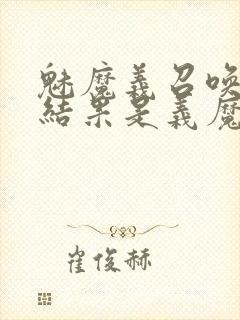 魅魔義召喚
結果是義魔
崔俊赫